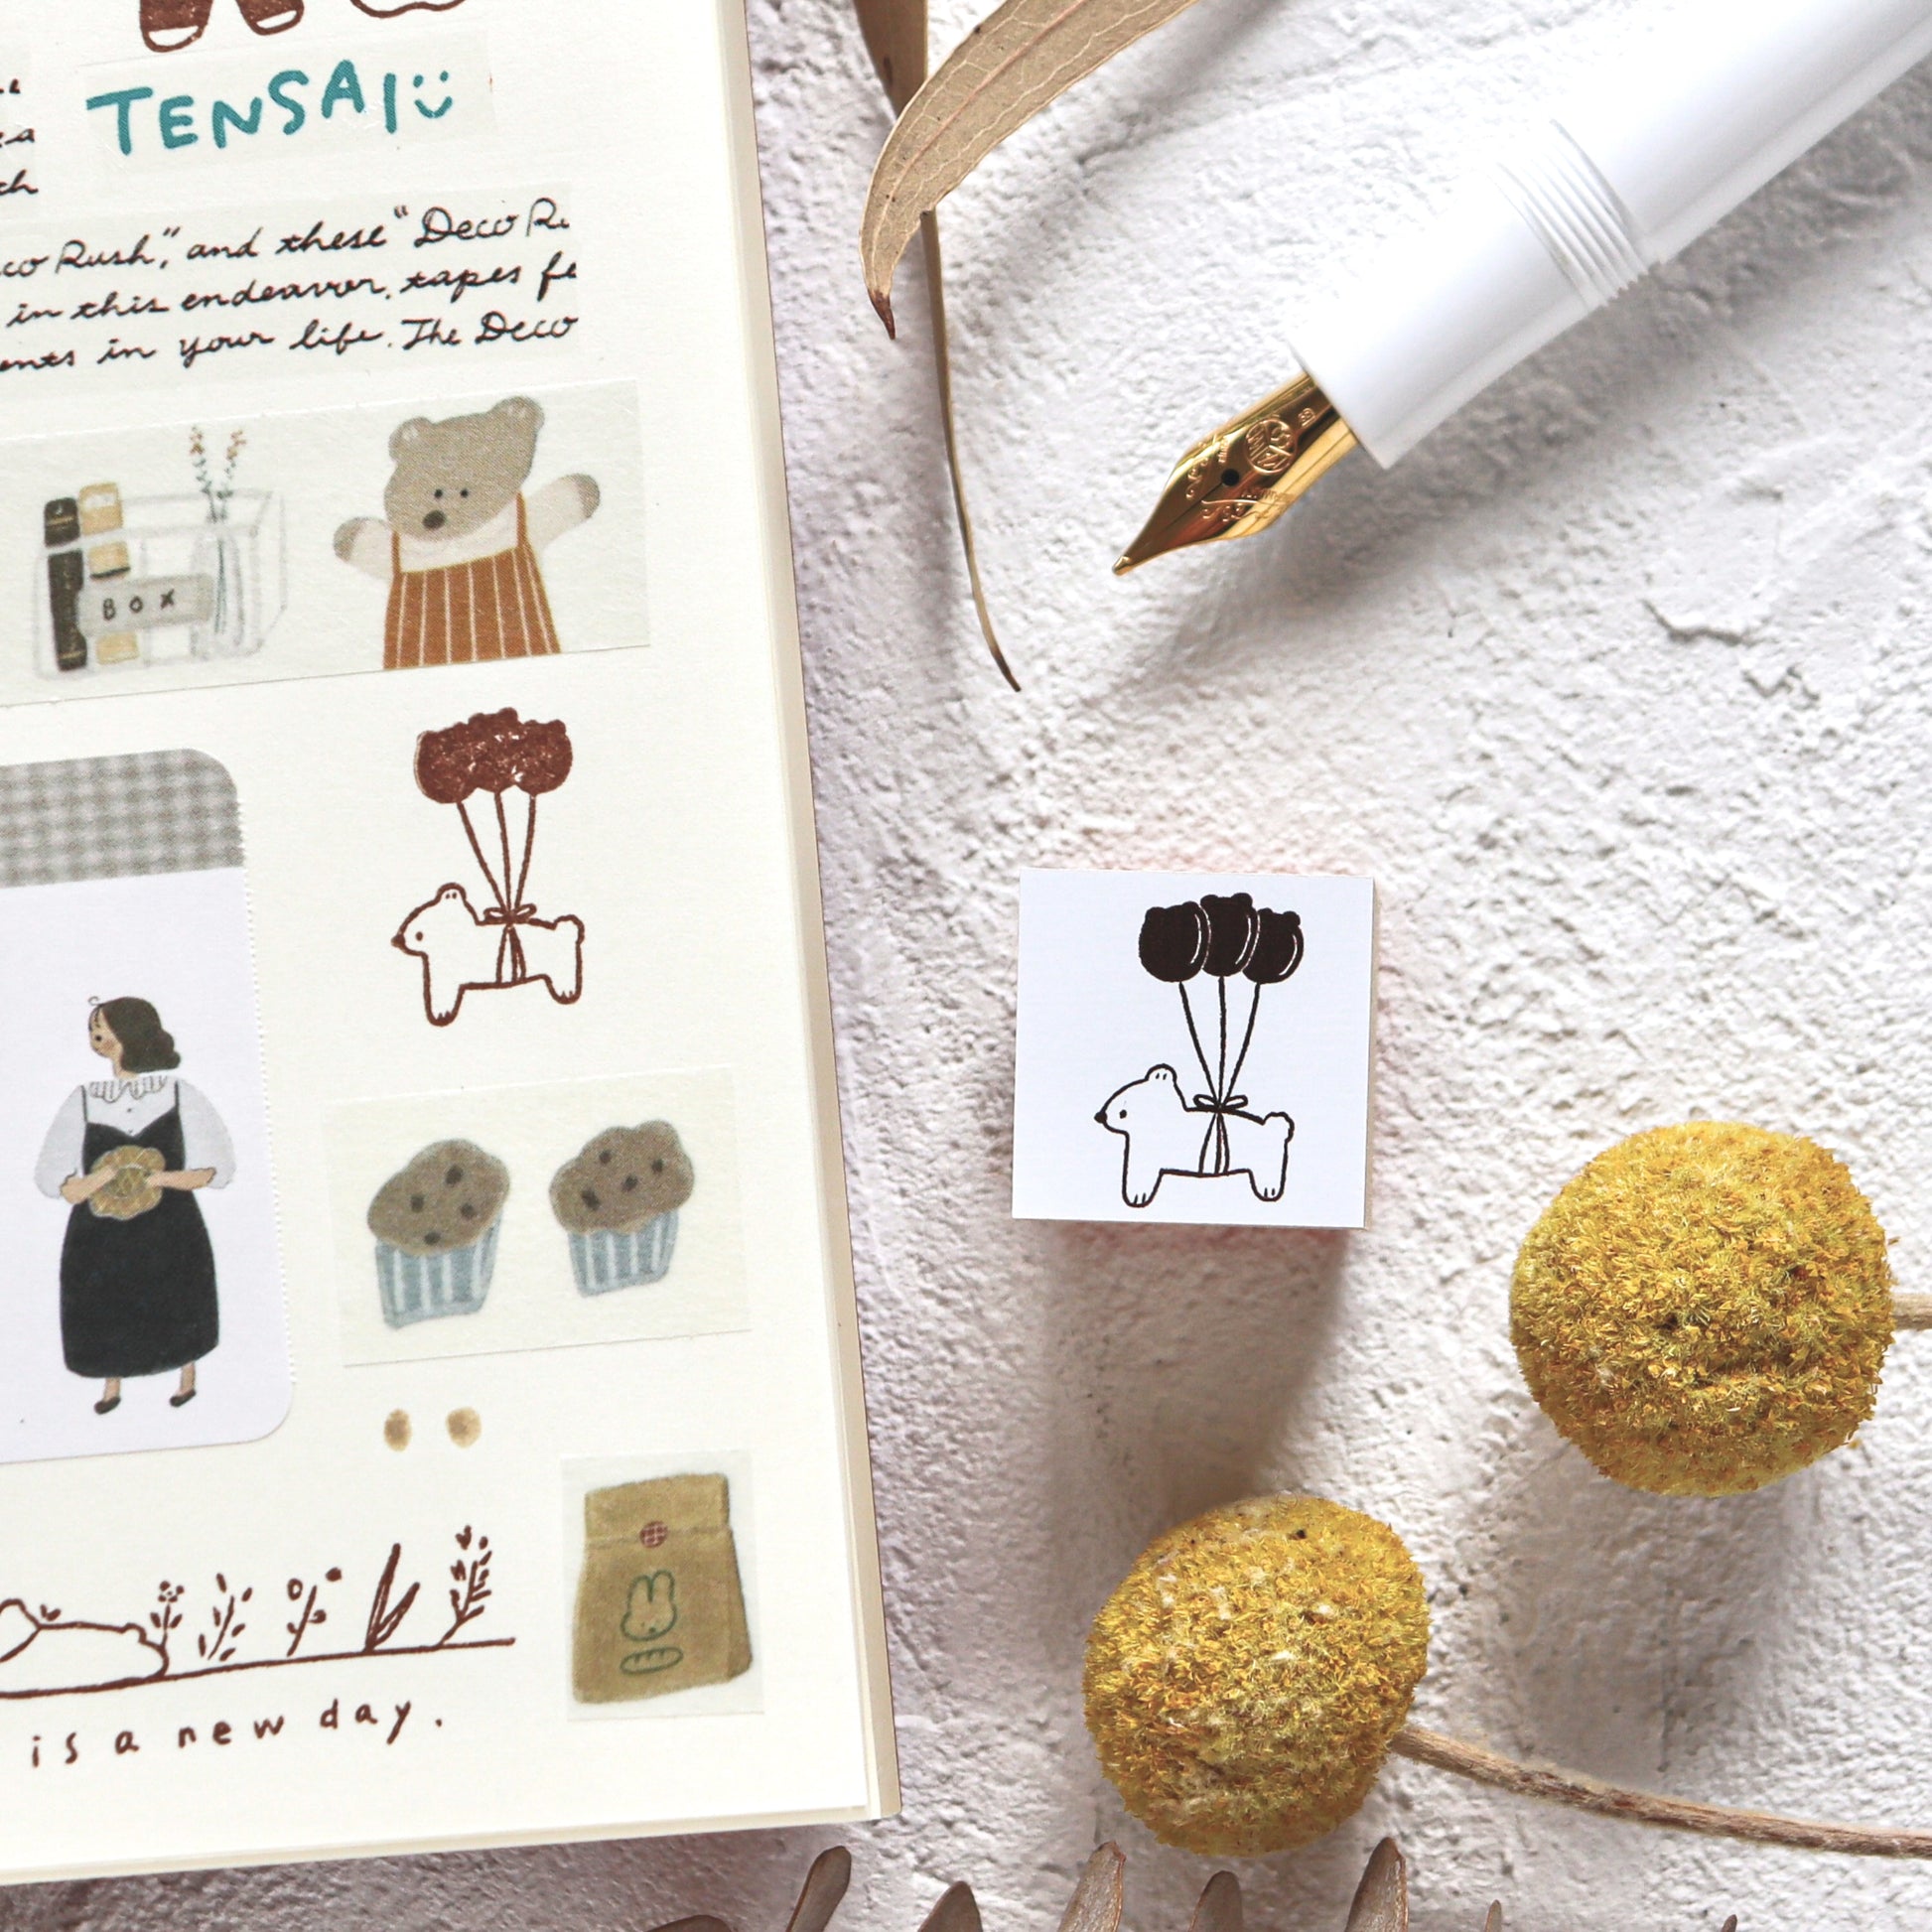 TENSAI
th
co Rush," and these "Deco Ru
in this endeavor. tapes fe
ents in your life. The Deco
BOX
is a new day.